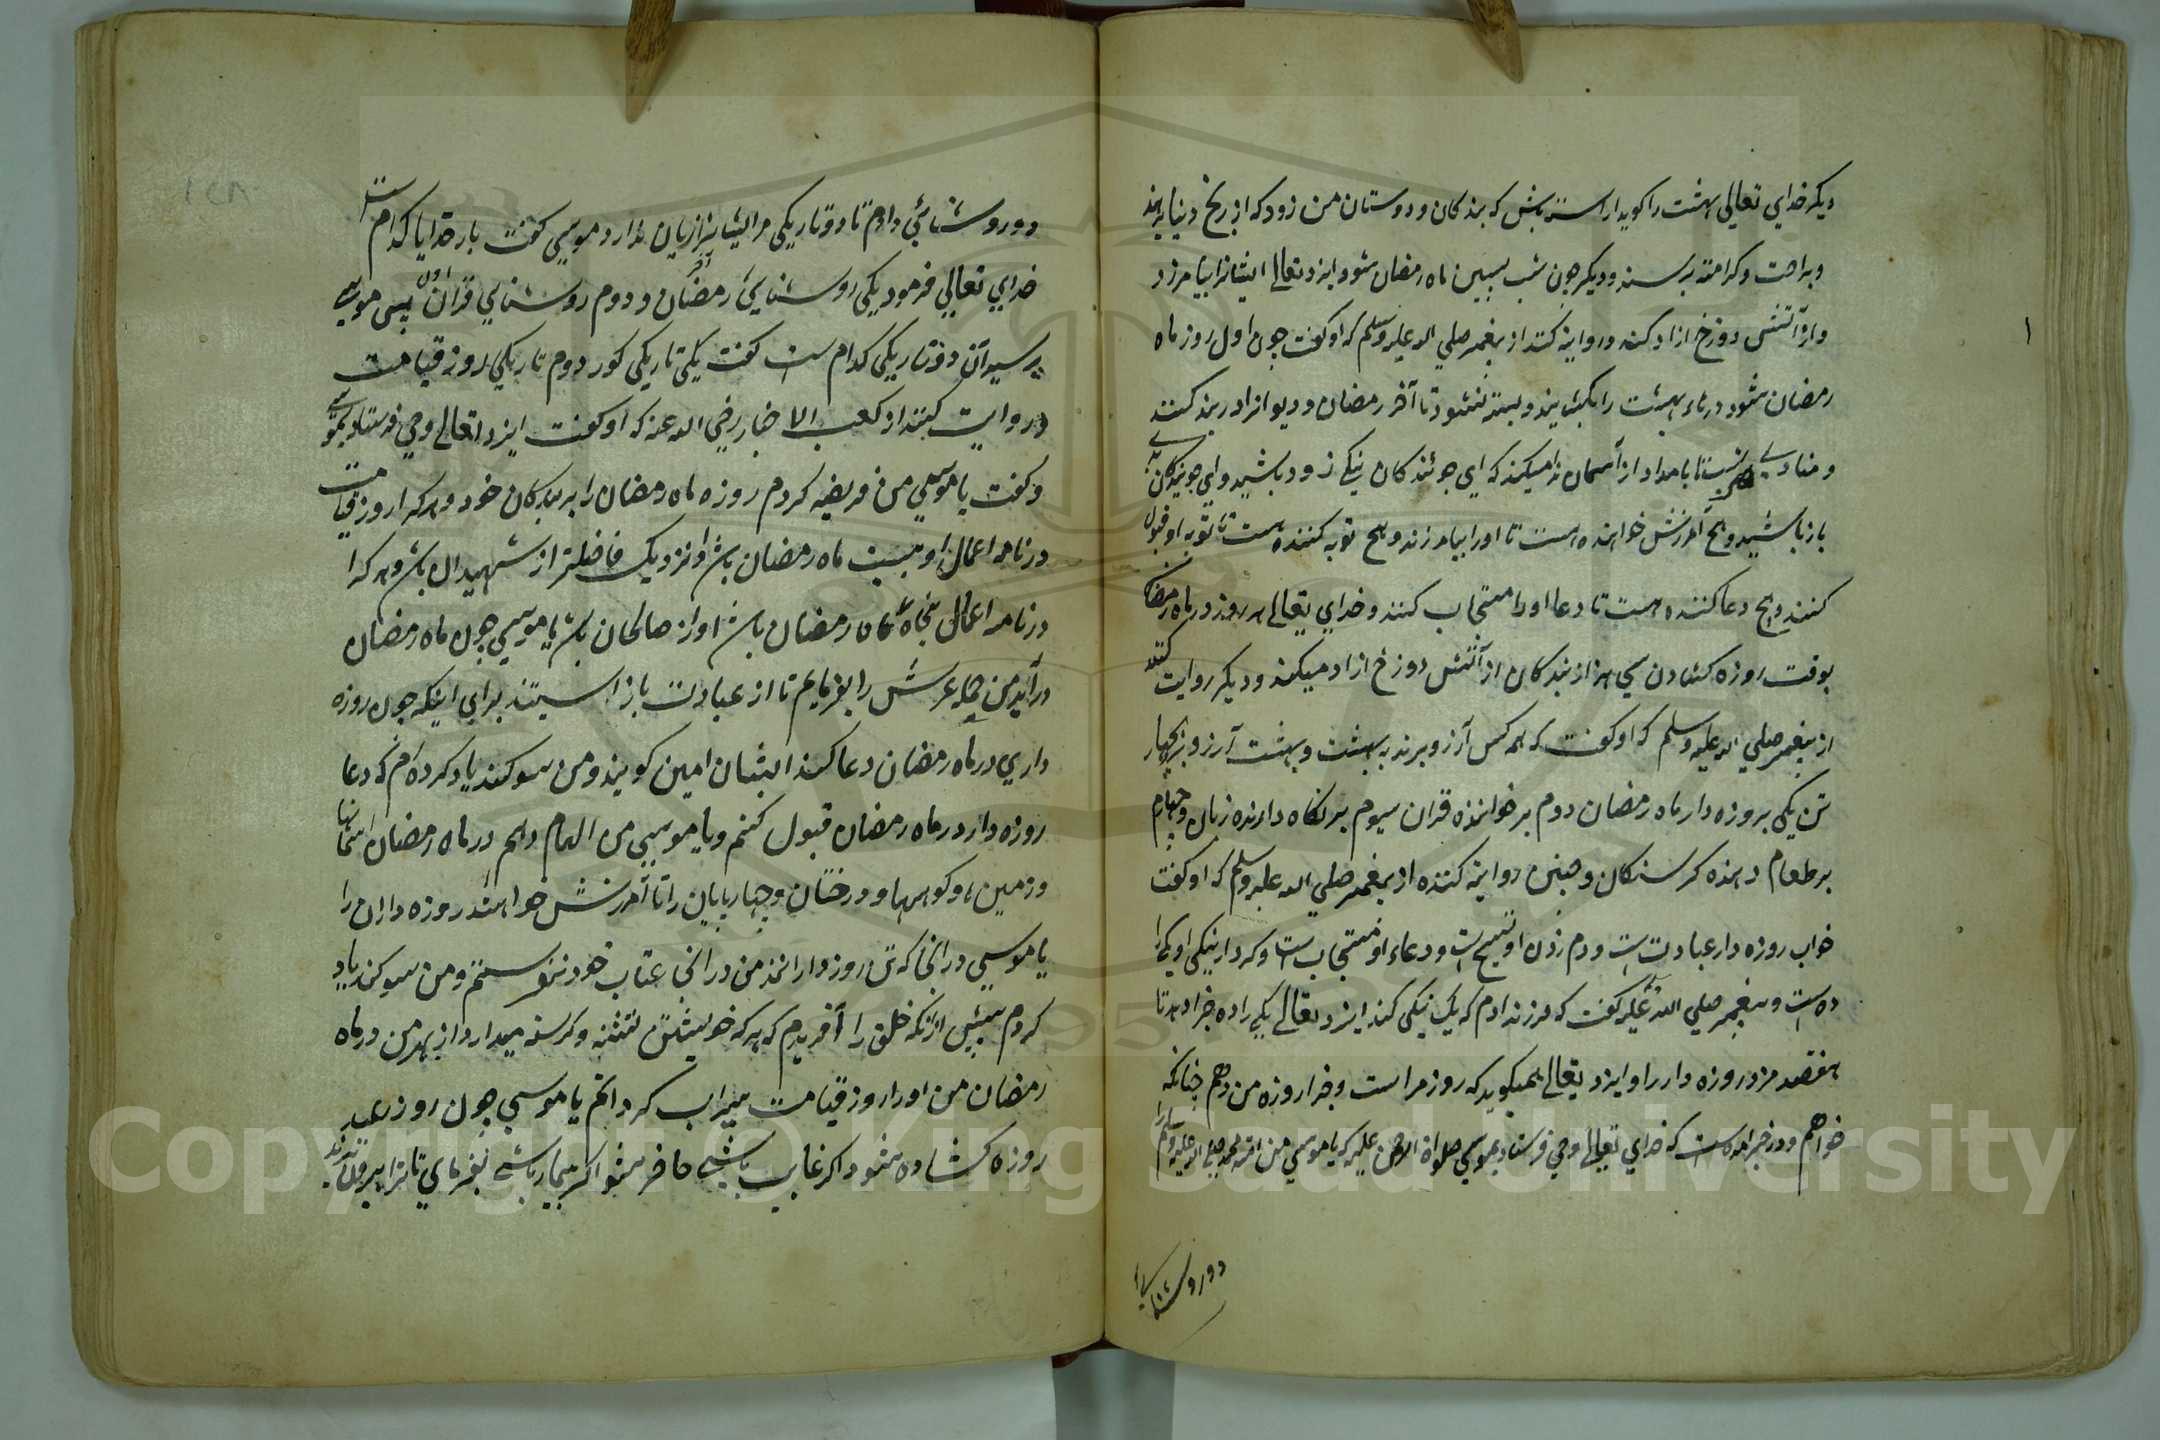 دیکر خداي تعالي بهشت را کوید اراسته باش که بندکان و دوستان من زود که از رنج دنیا برهند
و براحت و کرامت برسند و دیکر چون شب پسین ماه رمضان شود ایزد تعالی ایشانرا بیامرزد
و از آتش دوزخ ازاد کند و روایت کنند از پیغمبر صلي الله علیه وسلم که او کفت چون اول روز ماه
رمضان شود درهاء بهشت را بکشایند و بسته نشود تا آخر رمضان و دیوانرا در بند کنند
و منادي هر شب تا بامداد از آسمان ندا میکند که اي جوئندکان نیکي زود باشید و اي جویندکان بدي
باز باشید و هیچ آمرزش خواهنده هست تا اورا بیامرزند و هیچ توبه کننده هست تا توبه او قبول
کنند و هیچ دعا کننده هست تا دعا اورا مستجاب کنند و خداي تعالی هر روز در ماه رمضان
بوقت روزه کشادن سي هزار بندکان از آتش دوزخ ازاد میکند و دیکر روایت کنند
از پیغمبر صلي الله علیه وسلم که او کفت که همه کس آرزو برند به بهشت و بهشت آرزو برد بچهار
تن یکي بروزه دار ماه رمضان دوم بر خواننده قران سیوم بر نکاه دارنده زبان و چهارم
بر طعام دهنده کرسنکان و همچنین روایت کننده از پیغمبر صلي الله علیه وسلم که او کفت
خواب روزه دار عبادتست و دم زدن او تسبیح است و دعاء او مستجابست و کردار نیکی او یکي را
ده است و پیغمبر صلي الله علیه کفت که فرزند ادم که یک نیکي کند ایزد تعالی یکي را ده جزا دهد تا
بهفتصد مزد روزه دار را و ایزد تعالی همیکوید که روزه مراست و جزا روزه من دهم چنانکه
خواهم و در خبر امده است که خداي تعالی وحي فرستاد بموسي صلواة الرحمن علیه که یا موسي من امت محمد صلي الله علیه وسلم را
دو روشنائي
دو روشنائي دادم تا دو تاریکي مر ایشانرا زیان ندارد موسي کفت بار خدایا کدام است
خداي تعالي فرمود یکي روشنائي رمضان و دوم روشنایي قران پس موسي
پرسید آن دو تاریکي کدام است کفت یکي تاریکي کور دوم تاریکي روز قیامت
و روایت کنند از کعب الاخبار رضي الله عنه که او کفت ایزد تعالی وحي فرستاد بموسي
و کفت یا موسي من فریضه کردم روزه ماه رمضان را بر بندکان خود و هر که را روز قیامت
در نامه اعمال او بیست ماه رمضان باشد او نزدیک فاضلتر از شهیدان باشد و هر کرا
در نامه اعمال پنجاه ماه رمضان باشد او از صالحان باشد یا موسي چون ماه رمضان
درآید من حمله عرش را بفرمایم تا از عبادت باز ایستند براي اینکه چون روزه
داري در ماه رمضان دعا کند ایشان امین کویند و من سوکند یاد کرده ام که دعا
روزه دار در ماه رمضان قبول کنم و یا موسي من الهام دهم در ماه رمضان آسمانها
و زمین و کوهها و درختان و چهارپایان را تا آمرزش خواهند روزه داران را
یا موسي در انجا که تن روزه داراند من در انجا عتاب خود نفرستم و من سوکند یاد
کردم پیش ازانکه خلق را آفریدم که هر که خویشتن تشنه و کرسنه میدارد از بهر من در ماه
رمضان من اورا روز قیامت سیراب کردانم یا موسي چون روز عید
روزه کشاده شود اکر غایب باشي حاضر شو اکر بیمار باشي بفرماي تا ترا بیرون برند